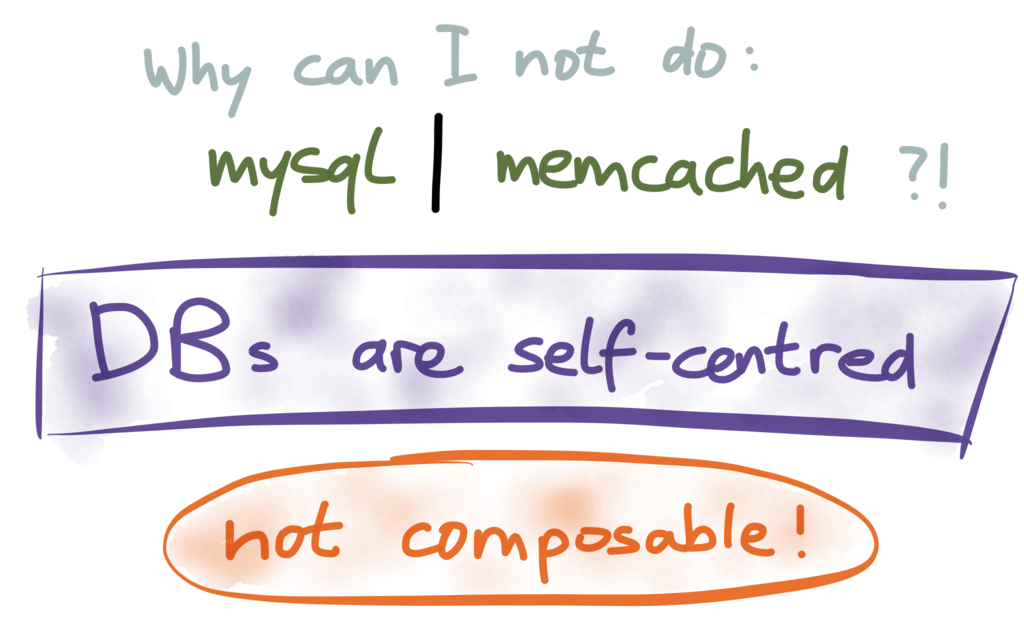 Why can I not do:
mysql | memcached ?!
DBs are self-centred
not composable!